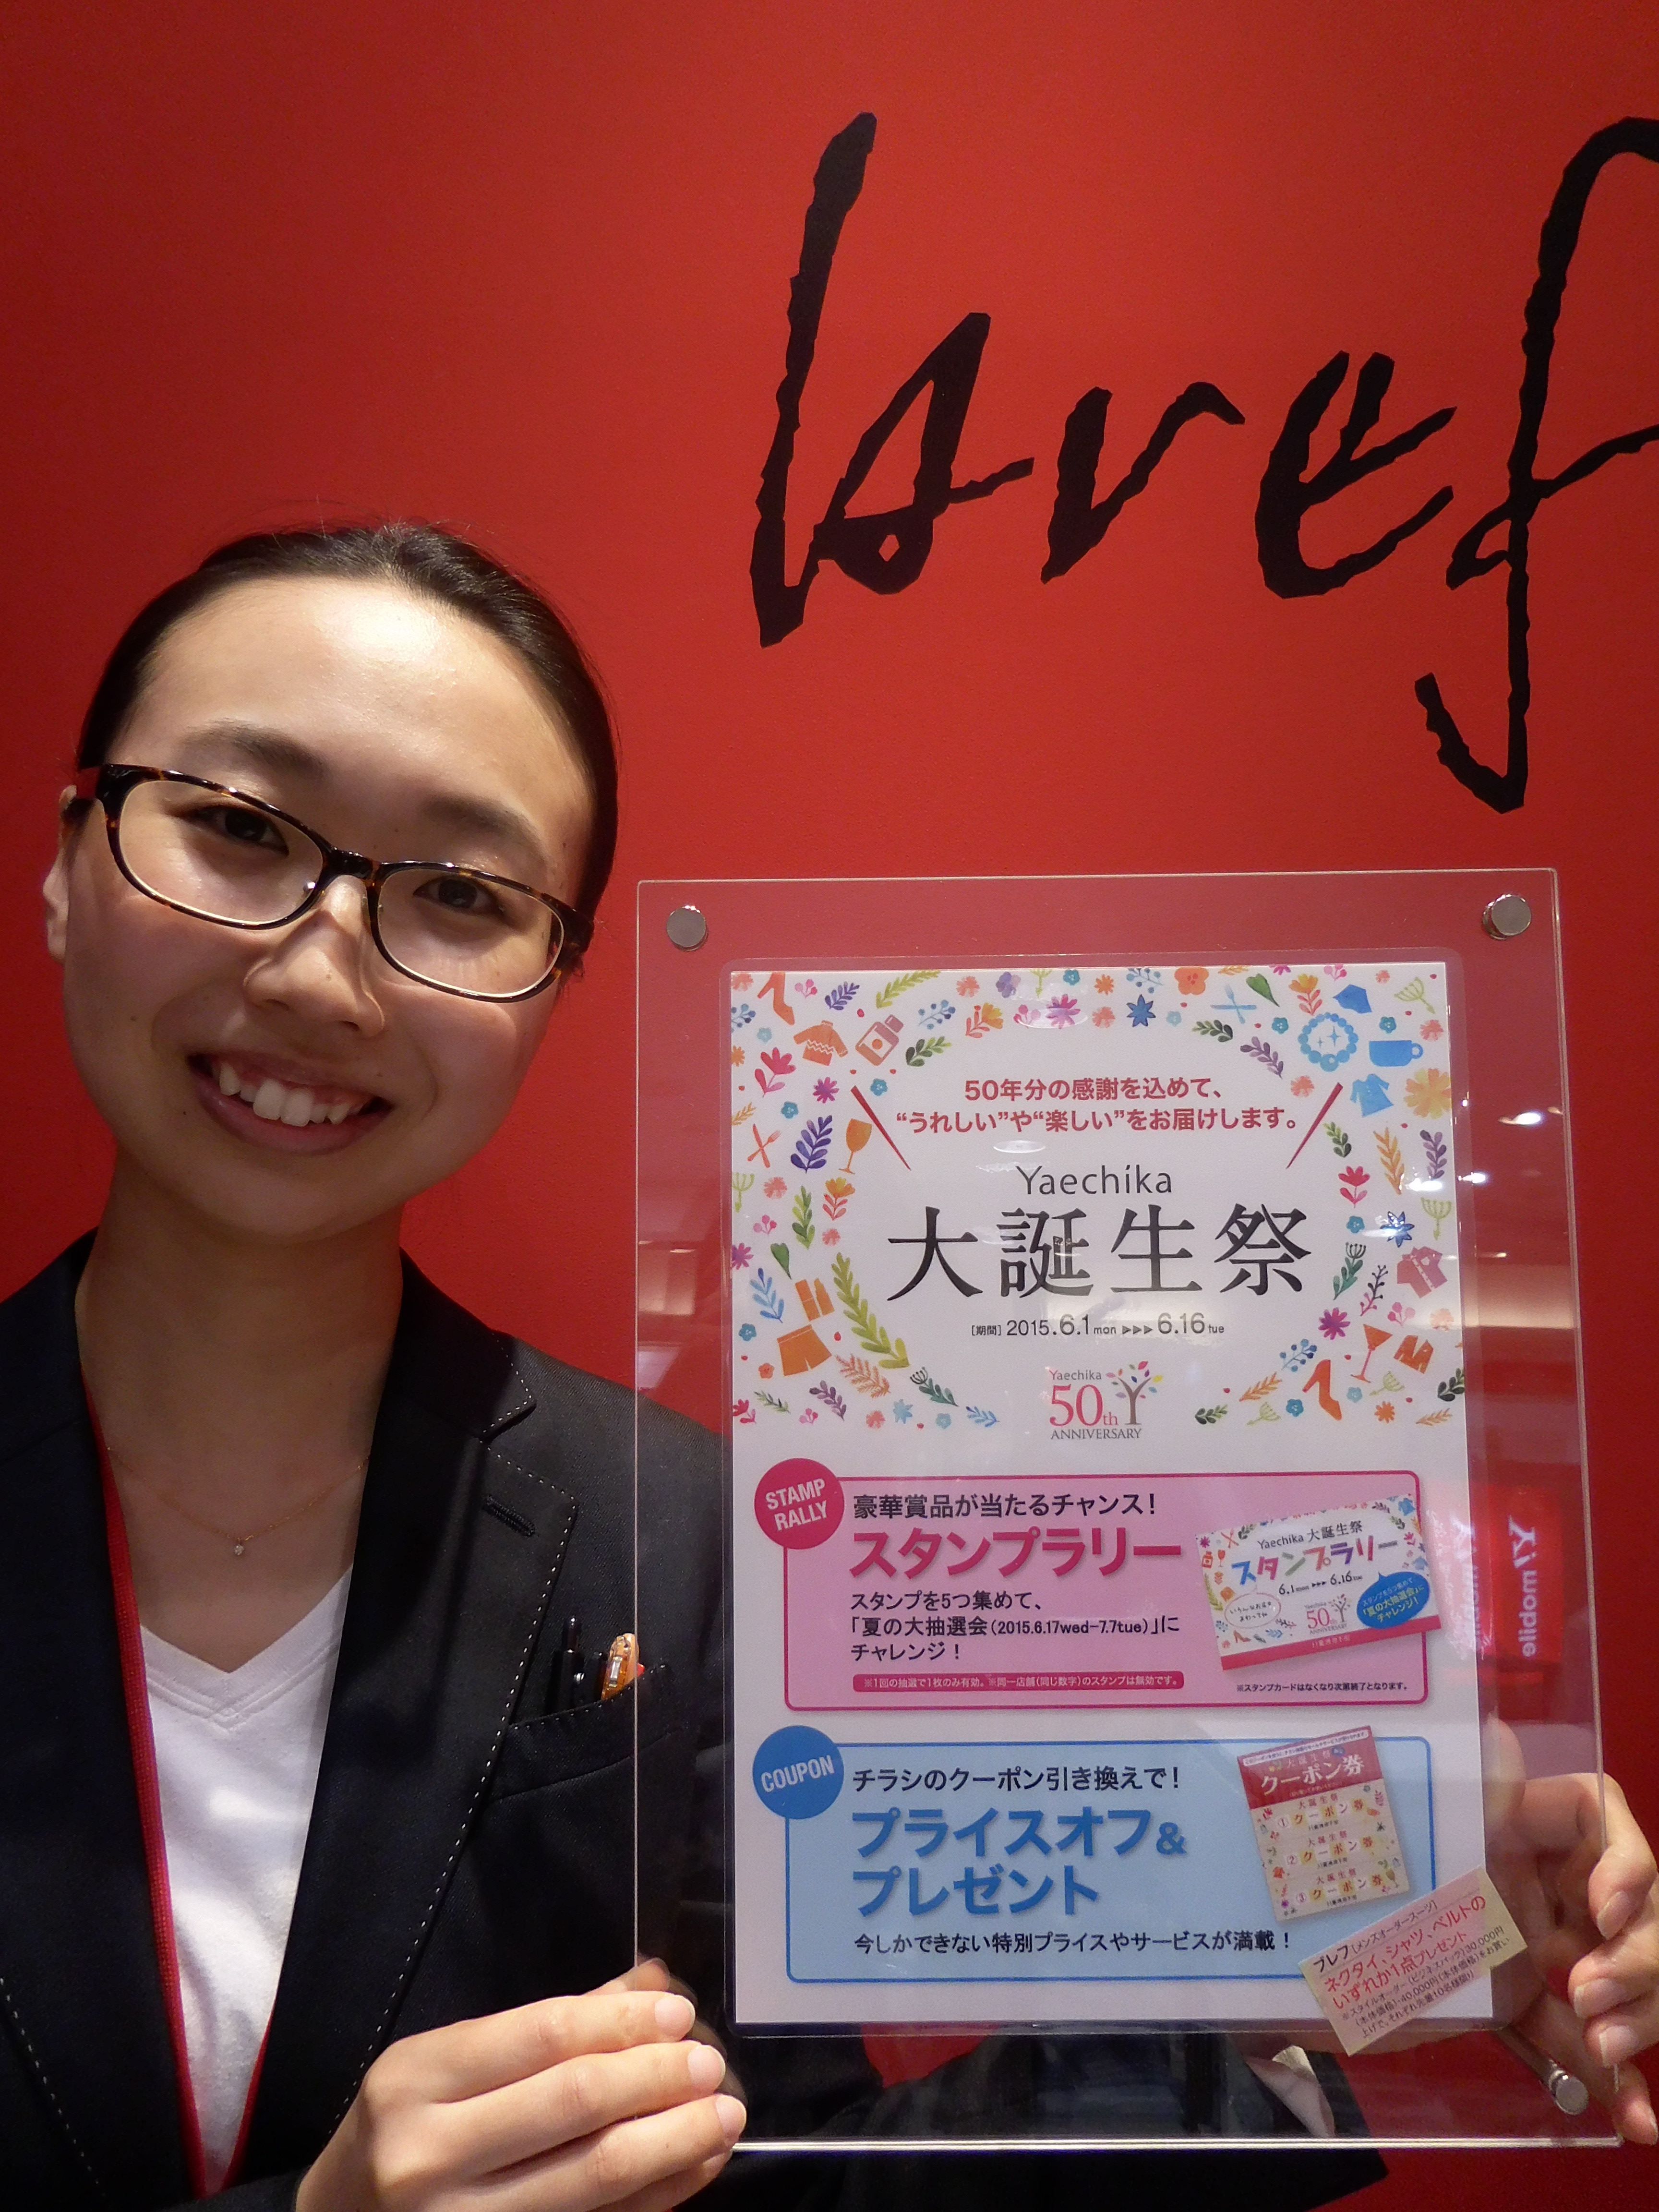 bref
50年分の感謝を込めて、
“うれしい”や“楽しい”をお届けします。
Yaechika
大誕生祭
[期間] 2015.6.1mon ▶▶▶ 6.16tue
Yaechika
50th
ANNIVERSARY
STAMP
RALLY
豪華賞品が当たるチャンス!
スタンプラリー
スタンプを5つ集めて、
「夏の大抽選会(2015.6.17wed-7.7tue)」に
チャレンジ!
※1回の抽選で1枚のみ有効。※同一店舗(同じ数字)のスタンプは無効です。
Yaechika 大誕生祭
スタンプラリー
6.1mon ▶▶▶ 6.16tue
Yaechika
50th
ANNIVERSARY
スタンプを5つ集めて
「夏の大抽選会」に
チャレンジ!
※スタンプカードはなくなり次第終了となります。
COUPON
チラシのクーポン引き換えで!
プライスオフ&
プレゼント
今しかできない特別プライスやサービスが満載!
大誕生祭
クーポン券
大誕生祭
①クーポン券
大誕生祭
②クーポン券
大誕生祭
③クーポン券
ブレフ[メンズオーダースーツ]
ネクタイ、シャツ、ベルトの
いずれか1点プレゼント